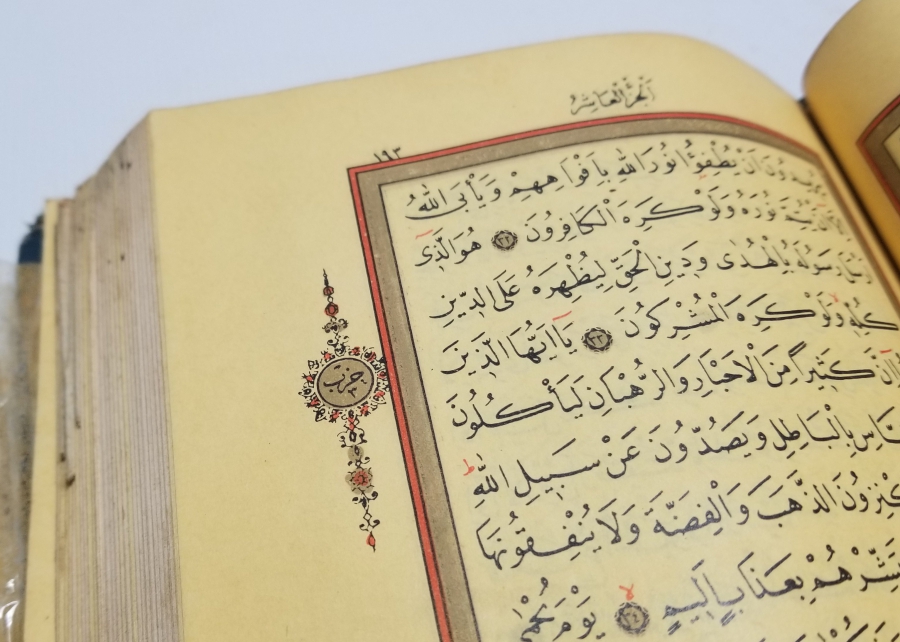 اَلْجُزْءُ الْعَاشِرُ
١٩٢
يُرِيدُونَ اَنْ يُطْفِؤُا نُورَ اللهِ بِاَفْوَاهِهِمْ وَيَأْبَى اللهُ
اَنْ يُتِمَّ نُورَهُ وَلَوْ كَرِهَ الْكَافِرُونَ ٣٢ هُوَ الَّذِى
رَسُولَهُ بِالْهُدٰى وَدِينِ الْحَقِّ لِيُظْهِرَهُ عَلَى الدِّينِ
كُلِّهِ وَلَوْ كَرِهَ الْمُشْرِكُونَ ٣٣ يَا اَيُّهَا الَّذِينَ
اِنَّ كَثِيراً مِنَ الْاَحْبَارِ وَالرُّهْبَانِ لَيَأْكُلُونَ
النَّاسِ بِالْبَاطِلِ وَيَصُدُّونَ عَنْ سَبِيلِ اللهِ ط
يَكْنِزُونَ الذَّهَبَ وَالْفِضَّةَ وَلَا يُنْفِقُونَهَا
فَبَشِّرْهُمْ بِعَذَابٍ اَلِيمٍ لا ٣٤ يَوْمَ يُحْمٰى
حزب